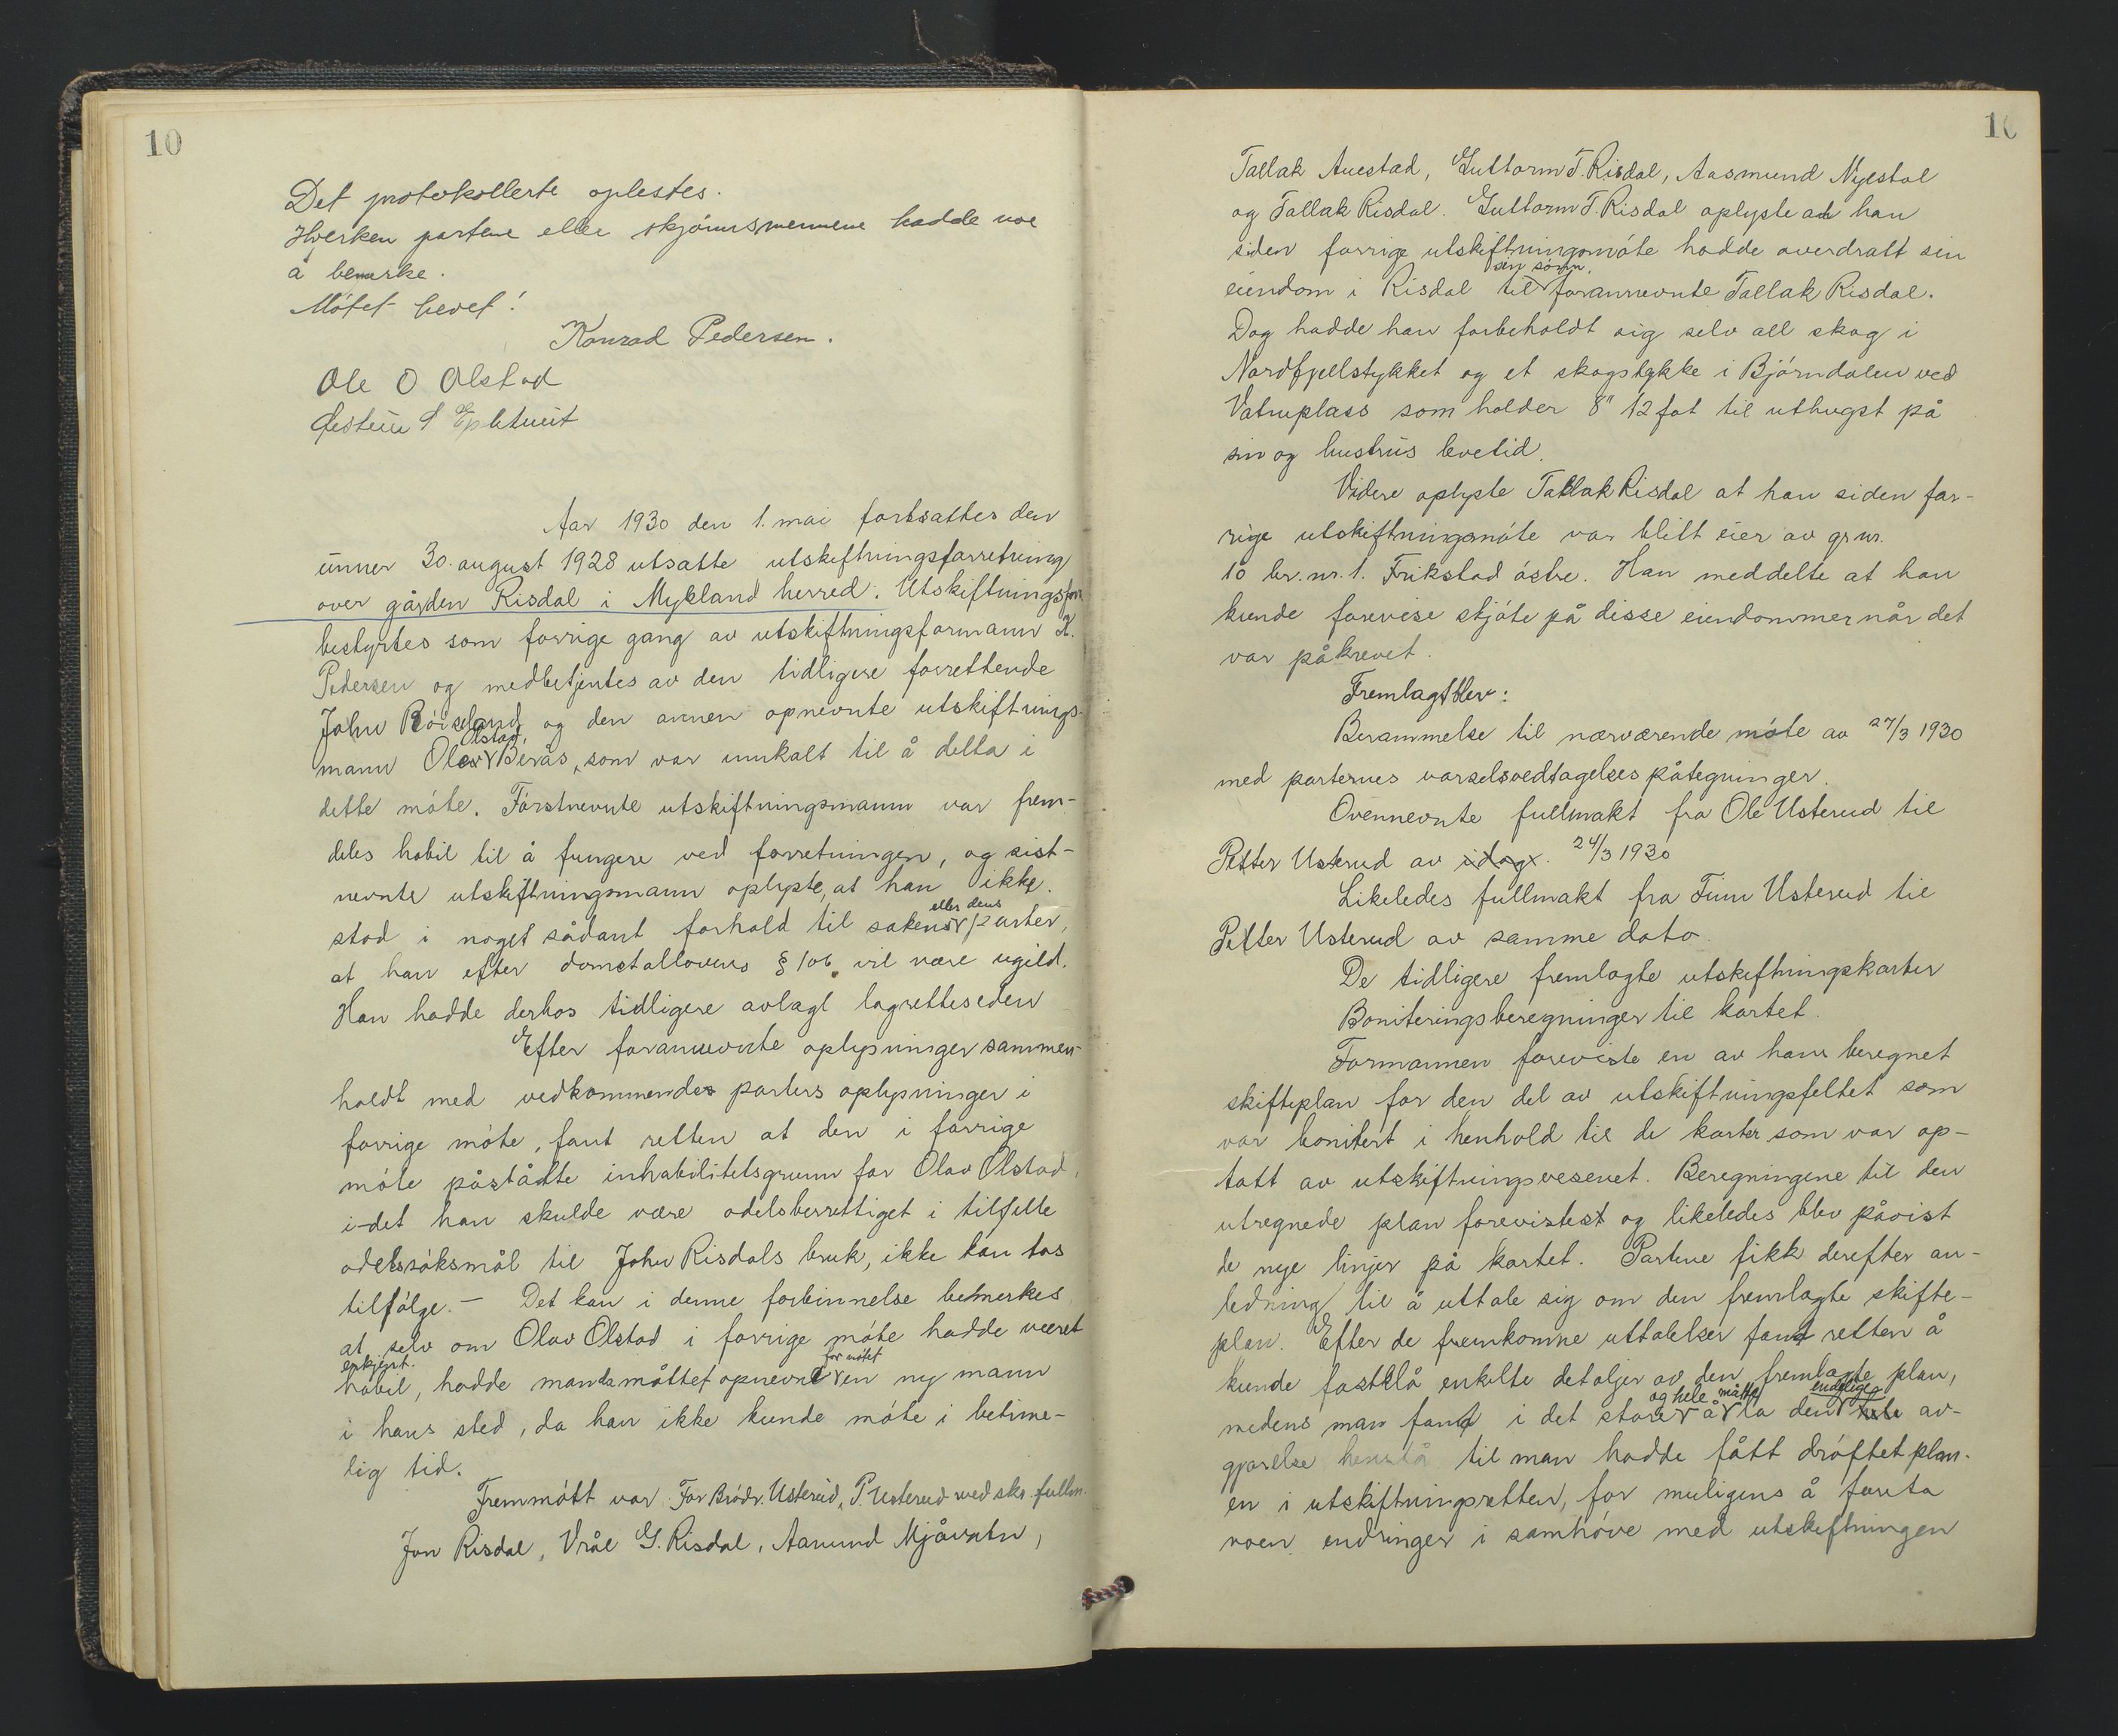 10
Det protokollerte oplestes.
Hverken partene eller skjønnsmennene hadde noe
å bemerke.
Møtet hevet!
Konrad Pedersen.
Ole O Olstad
Aar 1930 den 1. mai fortsattes den
unner 30. august 1928 utsatte utskiftningsforretning
over gården Risdal i Mykland herred. Utskiftningsforr
bestyrtes som forrige gang av utskiftningsformann K.
Pedersen og medbetjentes av den tidligere forrettende
John Røiseland og den annen opnevnte utskiftnings-
Olstad,
mann Olav Berås, som var innkalt til å delta i
dette møte. Førstnevnte utskiftningsmann var frem-
deles habil til å fungere ved forretningen, og sist-
nevnte utskiftningsmann oplyste, at han ikke
eller dens
stod i noget sådant forhold til sakens parter,
at han efter domstollovens § 106 vil være ugild.
Han hadde derhos tidligere avlagt lagretteseden
Efter forannevnte oplysninger sammen-
holdt med vedkommendes parters oplysninger i
forrige møte, fant retten at den i forrige
møte påståtte inhabilitetsgrunn for Olav Olstad,
i-det han skulde være odelsberettiget i tilfelle
odelssøksmål til John Risdals bruk, ikke kan tas
tilfølge. - Det kan i denne forbinnelse bemerkes
at selv om Olav Olstad i forrige møte hadde været
erkjent for møtet
habil, hadde man da måttet opnevne en ny mann
i hans sted, da han ikke kunde møte i betime-
lig tid.
Fremmøtt var. For Brødr. Usterud, P. Usterud med skr. fullm.
Jon Risdal, Vrål G. Risdal, Aanund Mjåvatn,
10
Tallak Auestad, Guttorm T. Risdal, Aasmund Nyestøl
og Tallak Risdal. Guttorm T. Risdal oplyste at han
siden forrige utskiftningsmøte hadde overdratt sin
sin sønn,
eiendom i Risdal til forannevnte Tallak Risdal.
Dog hadde han forbeholdt sig selv all skog i
Nordfjellstykket og et skogstykke i Bjørndalen ved
Vatneplass som holder 8" 12 fot til uthugst på
sin og hustrus levetid.
Videre oplyste Tallak Risdal at han siden for-
rige utskiftningsmøte var blitt eier av gr.nr.
10 br.nr. 1. Frikstad østre. Han meddelte at han
kunde forevise skjøte på disse eiendommer når det
var påkrevet.
Fremlagt blev:
Berammelse til nærværende møte av 27/3 1930
med parternes varselsvedtagelses påtegninger.
Ovennevnte fullmakt fra Ole Usterud til
Petter Usterud av idag. 24/3 1930
Likeledes fullmakt fra Finn Usterud til
Petter Usterud av samme dato
De tidligere fremlagte utskiftningskarter
Boniteringsberegninger til kartet.
Formannen foreviste en av ham beregnet
skifteplan for den del av utskiftningsfeltet som
var bonitert i henhold til de karter som var op-
tatt av utskiftningsvesenet. Beregningene til den
utregnede plan forevistest og likeledes blev påvist
de nye linjer på kartet. Partene fikk derefter an-
ledning til å uttale sig om den fremlagte skifte-
plan. Efter de fremkomne uttalelser fant retten å
kunde fastslå enkelte detaljer av den fremlagte plan,
og hele måtte endelige
medens man fant i det store å la den hele av-
gjørelse henstå til man hadde fått drøftet plan-
en i utskiftningsretten, for muligens å foreta
noen endringer i samhøve med utskiftningen